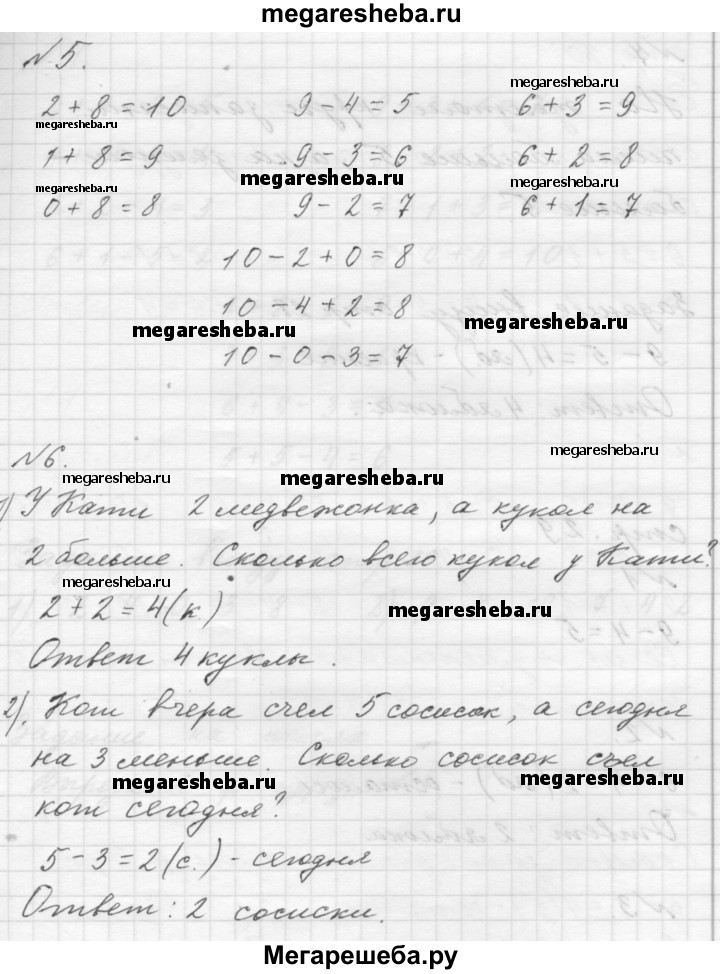 megaresheba.ru
№5.
2+8=10 9-4=5 6+3=9
megaresheba.ru megaresheba.ru
1+8=9 9-3=6 6+2=8
megaresheba.ru megaresheba.ru megaresheba.ru
0+8=8 9-2=7 6+1=7
10-2+0=8
10-4+2=8
megaresheba.ru megaresheba.ru
10-0-3=7
№6.
megaresheba.ru megaresheba.ru megaresheba.ru
1) У Кати 2 медвежонка, а кукол на
2 больше. Сколько всего кукол у Кати?
megaresheba.ru megaresheba.ru
2+2=4(к)
Ответ 4 куклы.
2). Кот вчера счел 5 сосисок, а сегодня
на 3 меньше. Сколько сосисок съел
megaresheba.ru megaresheba.ru
кот сегодня?
5-3=2(с.) - сегодня
Ответ: 2 сосиски.
Мегарешеба.ру